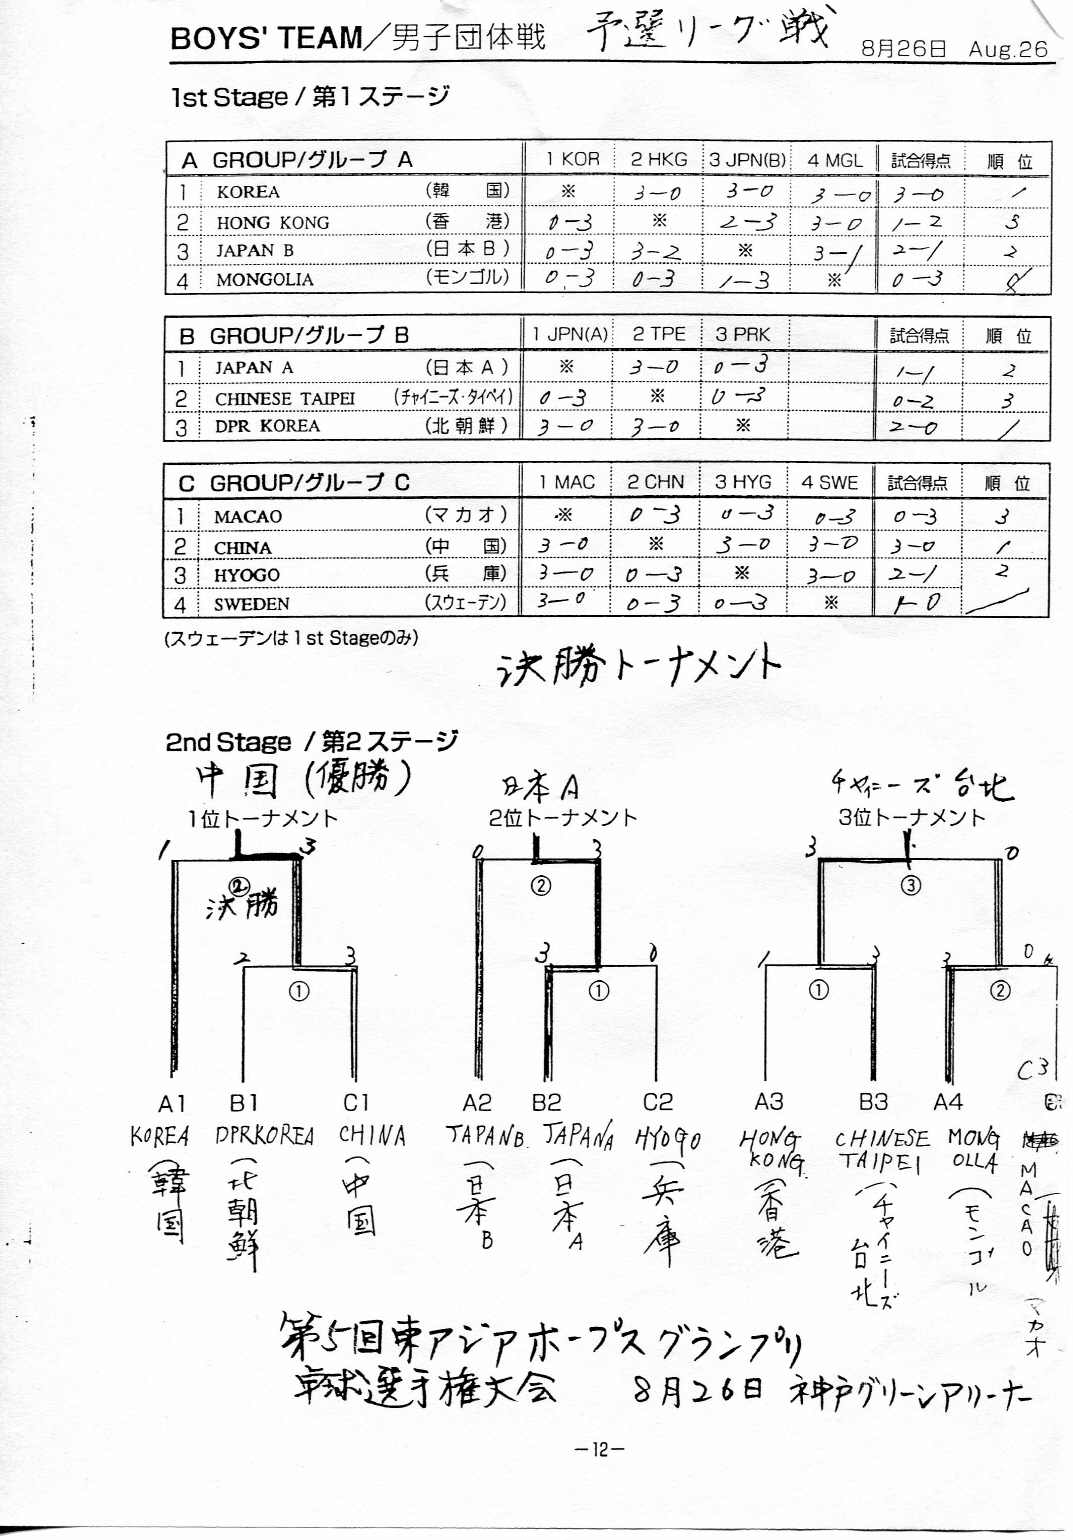 BOYS' TEAM/男子団体戦 予選リーグ戦 8月26日 Aug.26
1st Stage / 第1ステージ
A GROUP/グループ A 1 KOR 2 HKG 3 JPN(B) 4 MGL 試合得点 順 位
1 KOREA (韓 国) ※ 3-0 3-0 3-0 3-0 1
2 HONG KONG (香 港) 0-3 ※ 2-3 3-0 1-2 3
3 JAPAN B (日本B) 0-3 3-2 ※ 3-1 2-1 2
4 MONGOLIA (モンゴル) 0-3 0-3 1-3 ※ 0-3
B GROUP/グループ B 1 JPN(A) 2 TPE 3 PRK 試合得点 順 位
1 JAPAN A (日本A) ※ 3-0 0-3 1-1 2
2 CHINESE TAIPEI (チャイニーズ・タイペイ) 0-3 ※ 0-3 0-2 3
3 DPR KOREA (北朝鮮) 3-0 3-0 ※ 2-0 1
C GROUP/グループ C 1 MAC 2 CHN 3 HYG 4 SWE 試合得点 順 位
1 MACAO (マカオ) ※ 0-3 0-3 0-3 0-3 3
2 CHINA (中 国) 3-0 ※ 3-0 3-0 3-0 1
3 HYOGO (兵 庫) 3-0 0-3 ※ 3-0 2-1 2
4 SWEDEN (スウェーデン) 3-0 0-3 0-3 ※
(スウェーデンは1st Stageのみ)
決勝トーナメント
2nd Stage / 第2ステージ
中国(優勝) 日本A チャイニーズ台北
1位トーナメント 2位トーナメント 3位トーナメント
1 3 0 3 3 0
② ② ③
決勝
2 3 3 0 1 3 3 0
① ① ① ②
C3
A1 B1 C1 A2 B2 C2 A3 B3 A4
KOREA DPRKOREA CHINA JAPANB. JAPANA HYOGO HONG KONG CHINESE TAIPEI MONGOLLA MACAO
(韓国 (北朝鮮 (中国 (日本B (日本A (兵庫 (香港 (チャイニーズ台北 (モンゴル (マカオ
第5回東アジアホープスグランプリ
卓球選手権大会 8月26日 神戸グリーンアリーナー
-12-